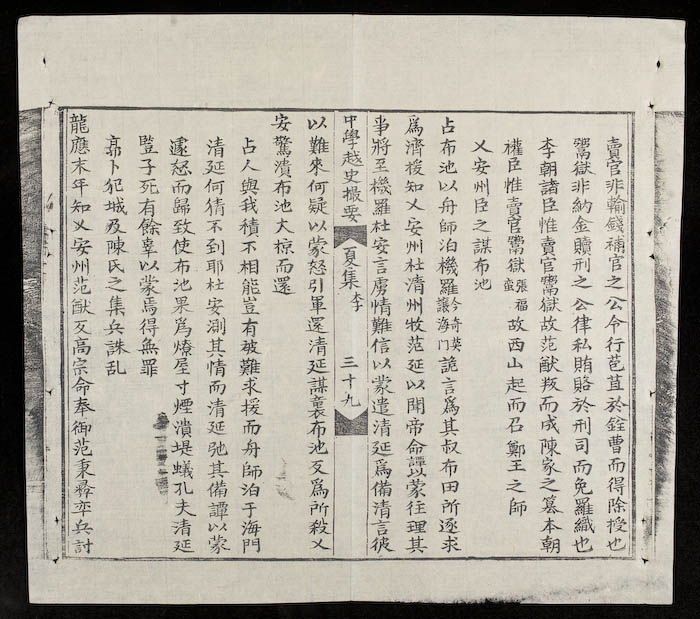 賣官非輸錢補官之公令行苞苴於銓曹而得除授也
鬻獄非納金贖刑之公律私賄賂於刑司而免羅織也
李朝諸臣惟賣官鬻獄故范猷叛而成陳家之篡本朝
權臣惟賣官鬻獄張福巒故西山起而召鄭王之師
乂安州臣之謀布池
占布池以舟師泊機羅今奇英讓海門詭言爲其叔布田所逐求
爲濟援知乂安州杜清州牧范延以聞帝命譚以蒙往理其
事將至機羅杜安言虜情難信以蒙遣清延爲備清言彼
中學越史撮要
貞集 李
三十九
以難來何疑以蒙怒引軍還清延謀襲布池反爲所殺乂
安驚潰布池大掠而還
占人與我積不相能豈有被難求援而舟師泊于海門
清延何猜不到耶杜安測其情而清延弛其備譚以蒙
遽怒而歸致使布池果爲燎屋寸煙潰堤蟻孔夫清延
豎子死有餘辜以蒙焉得無罪
郭卜犯城及陳氏之集兵誅亂
龍應末年知乂安州范猷反高宗命奉御范秉彝弈兵討